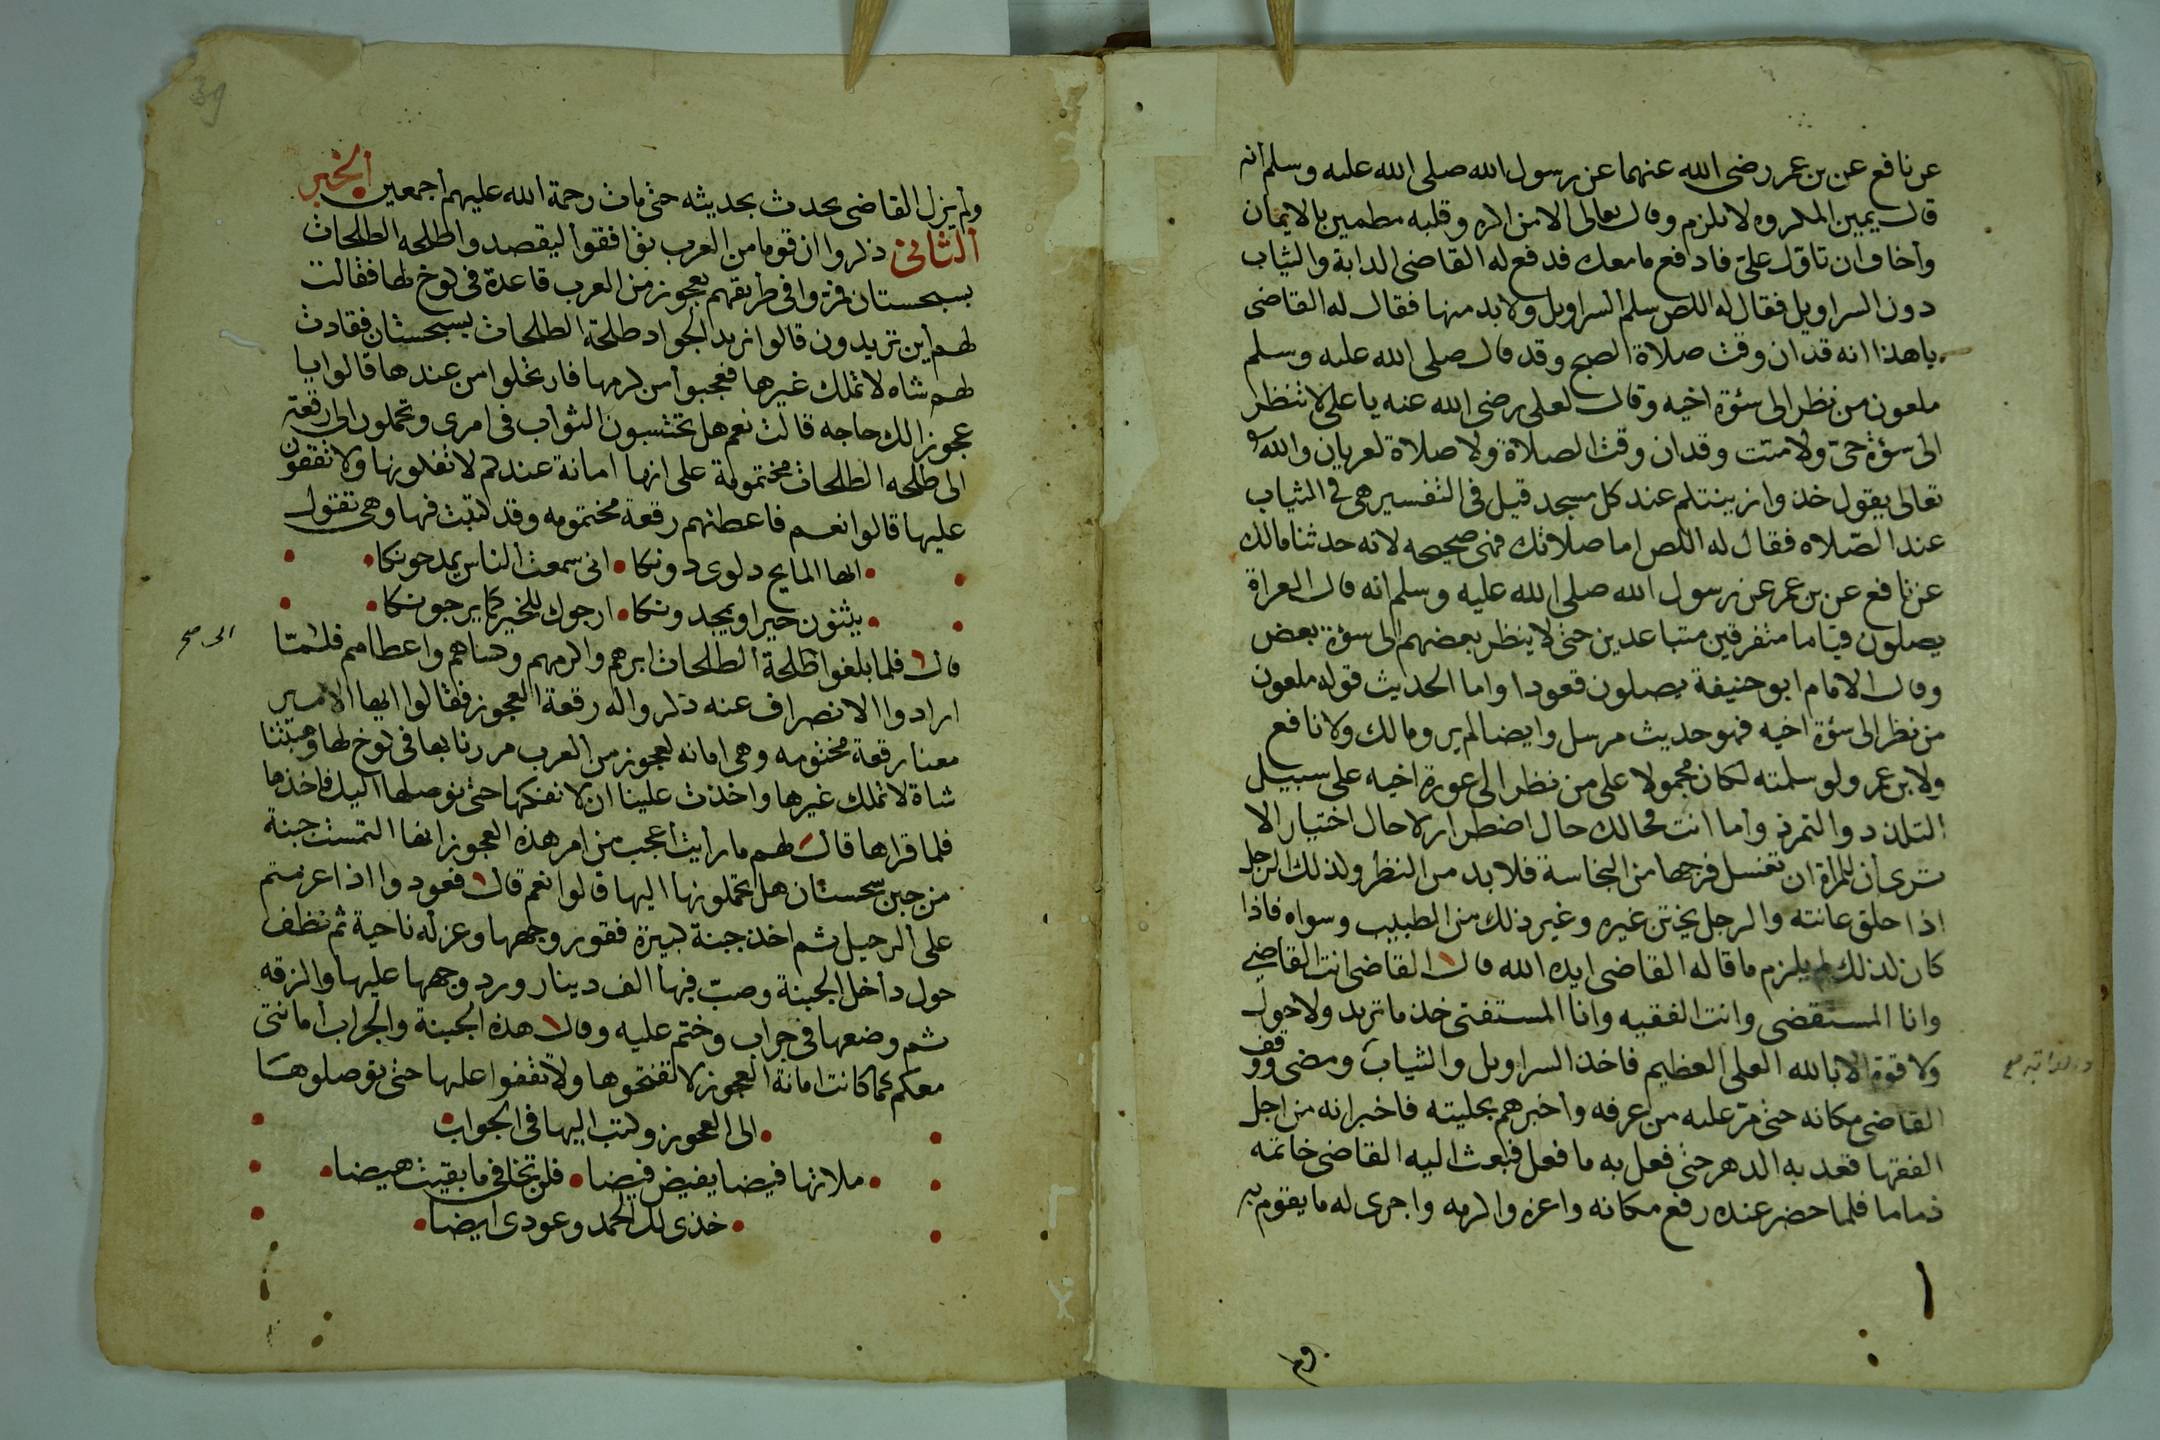 عن نافع عن بن عمر رضى الله عنهما عن رسول الله صلى الله عليه وسلم أنه
قال يمين المكروه لا تلزم وقال تعالى الا من اكره وقلبه مطمين بالايمان
وأخاف ان تاوّل علىّ فادفع ما معك فدفع له القاضى الدابة والثياب
دون السراويل فقال له اللص سلم السراويل ولا بد منها فقال له القاضى
يا هذا انه قد ان وقت صلاة الصبح وقد قال صلى الله عليه وسلم
ملعون من نظر الى سؤة اخيه وقال لعلى رضى الله عنه يا على لا تنظر
الى سؤة حىّ ولا ميت وقد ان وقت الصلاة ولا صلاة لعريان والله
تعالى يقول خذوا زينتكم عند كل مسجد قيل فى التفسير هى فى الثياب
عند الصّلاه فقال له اللص اما صلاتك فهى صحيحه لانه حدثنا مالك
عن نافع عن بن عمر عن رسول الله صلى الله عليه وسلم انه قال العراة
يصلون قياما متفرقين متباعدين حتى لا ينظر بعضهم الى سؤة بعض
وقال الامام ابو حنيفة يصلون قعودا واما الحديث قوله ملعون
من نظر الى سؤة اخيه فهو حديث مرسل وايضا لم يروه مالك ولا نافع
ولا بن عمر ولو سلمته لكان محمولا على من نظر الى عورة اخيه على سبيل
التلذذ والتمره وأما انت فحالك حال اضطرار لا حال اختيار الا
ترى أن للمراة ان تغسل فرجها من النجاسة فلا بد من النظر وكذلك الرجل
اذا حلق عانته والرجل يختن غيره وغير ذلك من الطبيب وسواه فاذا
كان كذلك لم يلزم ما قاله القاضى ايده الله قال القاضى انت القاضى
وانا المستقضى وانت الفقيه وانا المستفتى خذ ما تريد ولا حول
ولا قوة الا بالله العلى العظيم فاخذ السراويل والثياب ومضى ووقف
القاضى مكانه حتى مرّ عليه من عرفه وأخبرهم بحليته فاخبر انه من اجل
الفقها قعد به الدهر حتى فعل به ما فعل فبعث اليه القاضى خاتمه
ذماما فلما حضر عنده رفع مكانه واعزه واكرمه واجرى له ما يقوم به
ولم
39
ولم يزل القاضى يحدث بحديثه حتى مات رحمة الله عليهم أجمعين ألخبر
ألثانى ذكروا ان قوما من العرب توافقوا ليقصدوا طلحه الطلحات
بسجستان فمروا فى طريقهم بعجوز من العرب قاعدة فى كوخ لها فقالت
لهم أين تريدون قالوا نريد الجواد طلحة الطلحات بسجستان فقادت
لهم شاه لا تملك غيرها فعجبوا من كرمها فارتحلوا من عندها قالوا يا
عجوز الك حاجه قالت نعم هل تحتسبون الثواب فى امرى وتحملون لى رقعة
الى طلحه الطلحات مختومة على انها امانة عندكم لا تفكونها ولا تقفون
عليها قالوا نعم فاعطتهم رقعة مختومه وقد كتبت فيها وهى تقول
ايها المايح دلوى دونكا • انى سمعت الناس يمدحونكا
يثنون خيرا ويمجدونكا • ارجوك للخير كما يرجونكا
قال فلما بلغوا طلحة الطلحات ابرهم واكرمهم وكساهم واعطاهم فلمّا
ارادوا الانصراف عنه ذكروا له رقعة العجوز فقالوا ايها الامير
معنا رقعة مختومه وهى امانه لعجوز من العرب مررنا بها فى كوخ لها وهبتنا
شاة لا تملك غيرها واخذت علينا ان لا نفكها حتى نوصلها اليك فاخذها
فلما قراها قال لهم ما رأيت أعجب من امر هذه العجوز انها التمست جبنة
من جبن سجستان هل تحملونها اليها قالوا نعم قال فعودوا اذا عزمتم
على ألرحيل ثم اخذ جبنة كبيرة فقور وجهها وعزله ناحية ثم نظف
حول داخل الجبنة وصبّ فيها الف دينار ورد وجهها عليها والزقه
ثم وضعها فى جراب وختم عليه وقال هذه الجبنة والجراب أمانتى
معكم كما كانت امانة العجوز لا تفتحوها ولا تقفوا عليها حتى توصلوها
الى العجوز وكتب اليها فى الجواب
ملانها فيضا يفيض فيضا • فلن تخافى ما بقيت هيضا
خذى لك الحمد وعودى ايضا